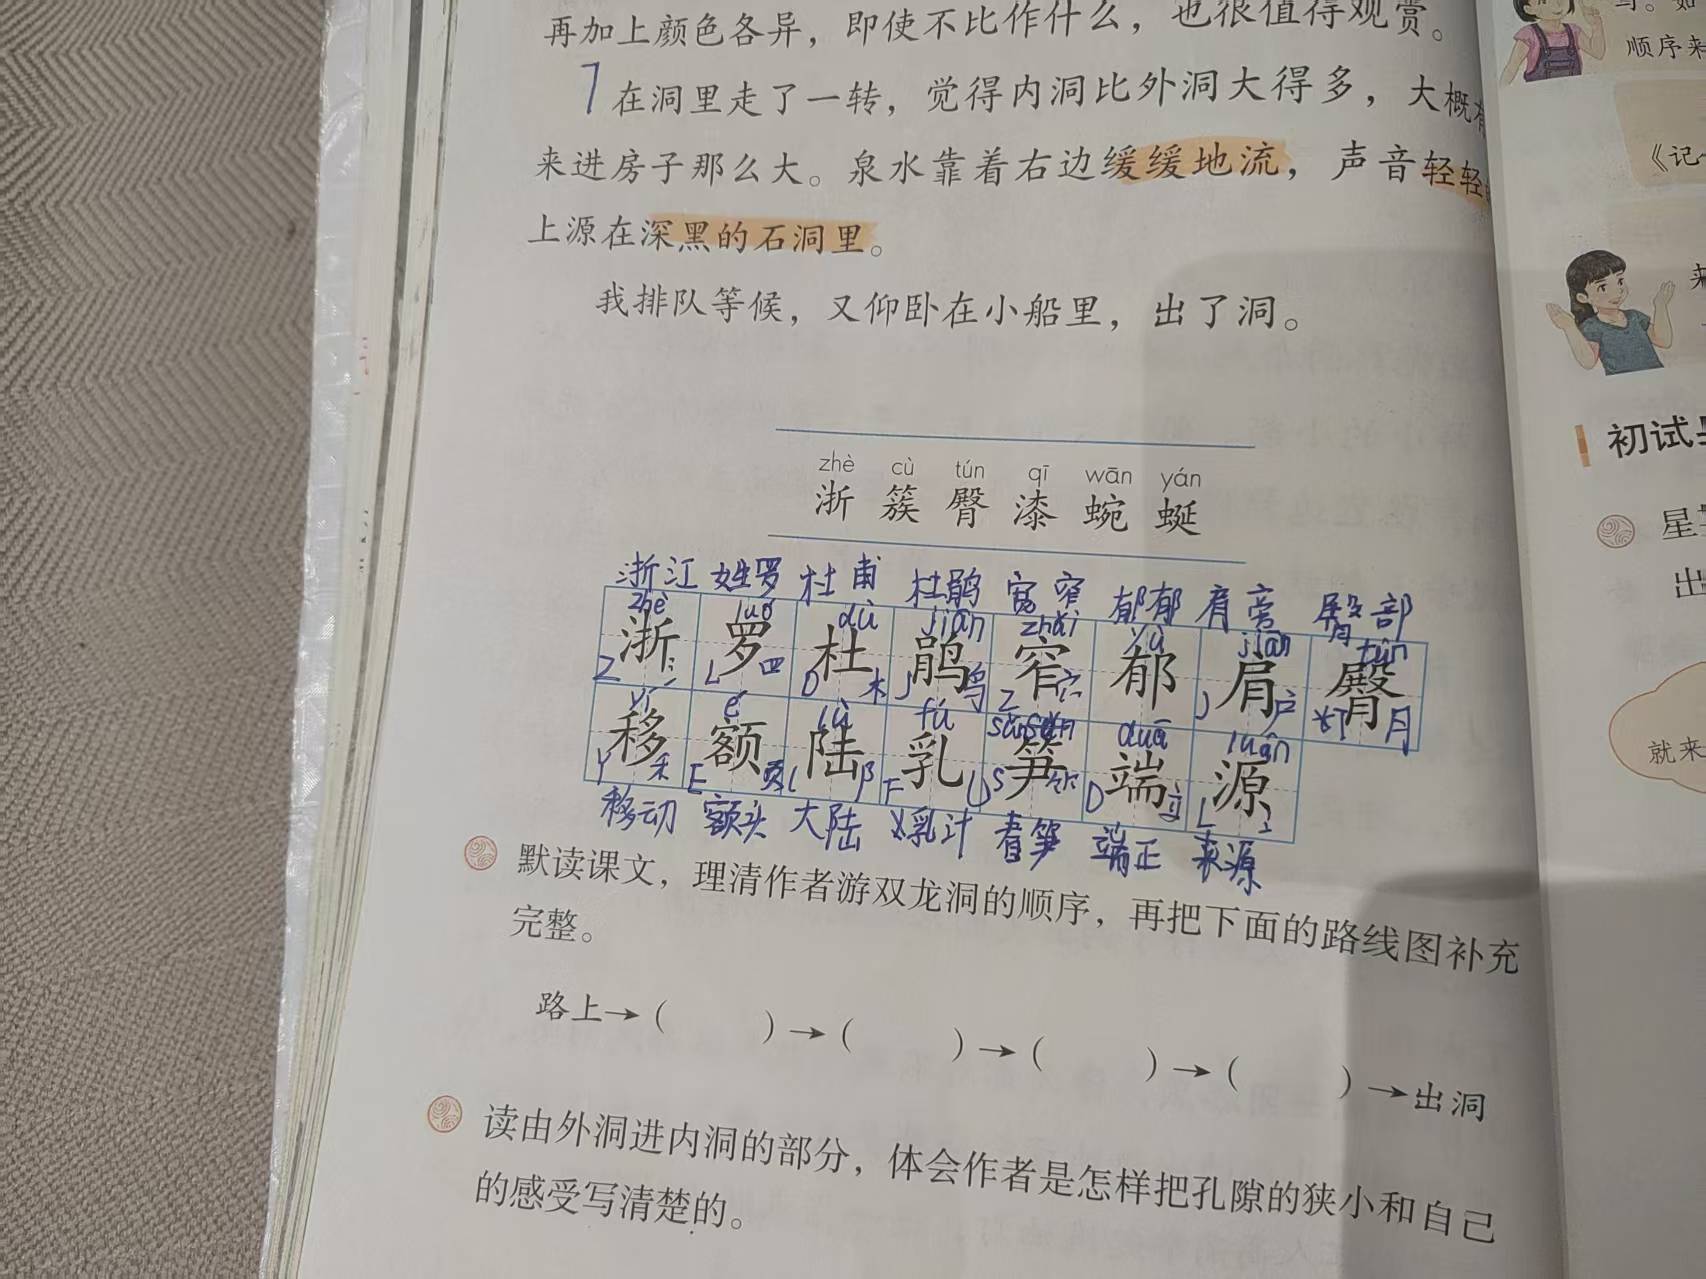 再加上颜色各异，即使不比作什么，也很值得观赏。
7 在洞里走了一转，觉得内洞比外洞大得多，大概有
来进房子那么大。泉水靠着右边缓缓地流，声音轻轻
上源在深黑的石洞里。
我排队等候，又仰卧在小船里，出了洞。
zhè cù tún qī wān yán
浙 簇 臀 漆 蜿 蜒
浙江 姓罗 杜甫 杜鹃 宽窄 郁郁 肩旁 臀部
zhè luó dù jiān zhǎi yù jiān tún
浙 罗 杜 鹃 窄 郁 肩 臀
Z 氵 L 罒 D 木 J 鸟 Z 穴 J 户 月
yí é lù fú sǔn duā luán
移 额 陆 乳 笋 端 源
Y 禾 E 页 L 阝 F 乚 S 竹 D 立 L 氵
移动 额头 大陆 乳汁 春笋 端正 来源
默读课文，理清作者游双龙洞的顺序，再把下面的路线图补充
完整。
路上→（ ）→（ ）→（ ）→（ ）→出洞
读由外洞进内洞的部分，体会作者是怎样把孔隙的狭小和自己
的感受写清楚的。
顺序来
《记
初试
星
出
就来